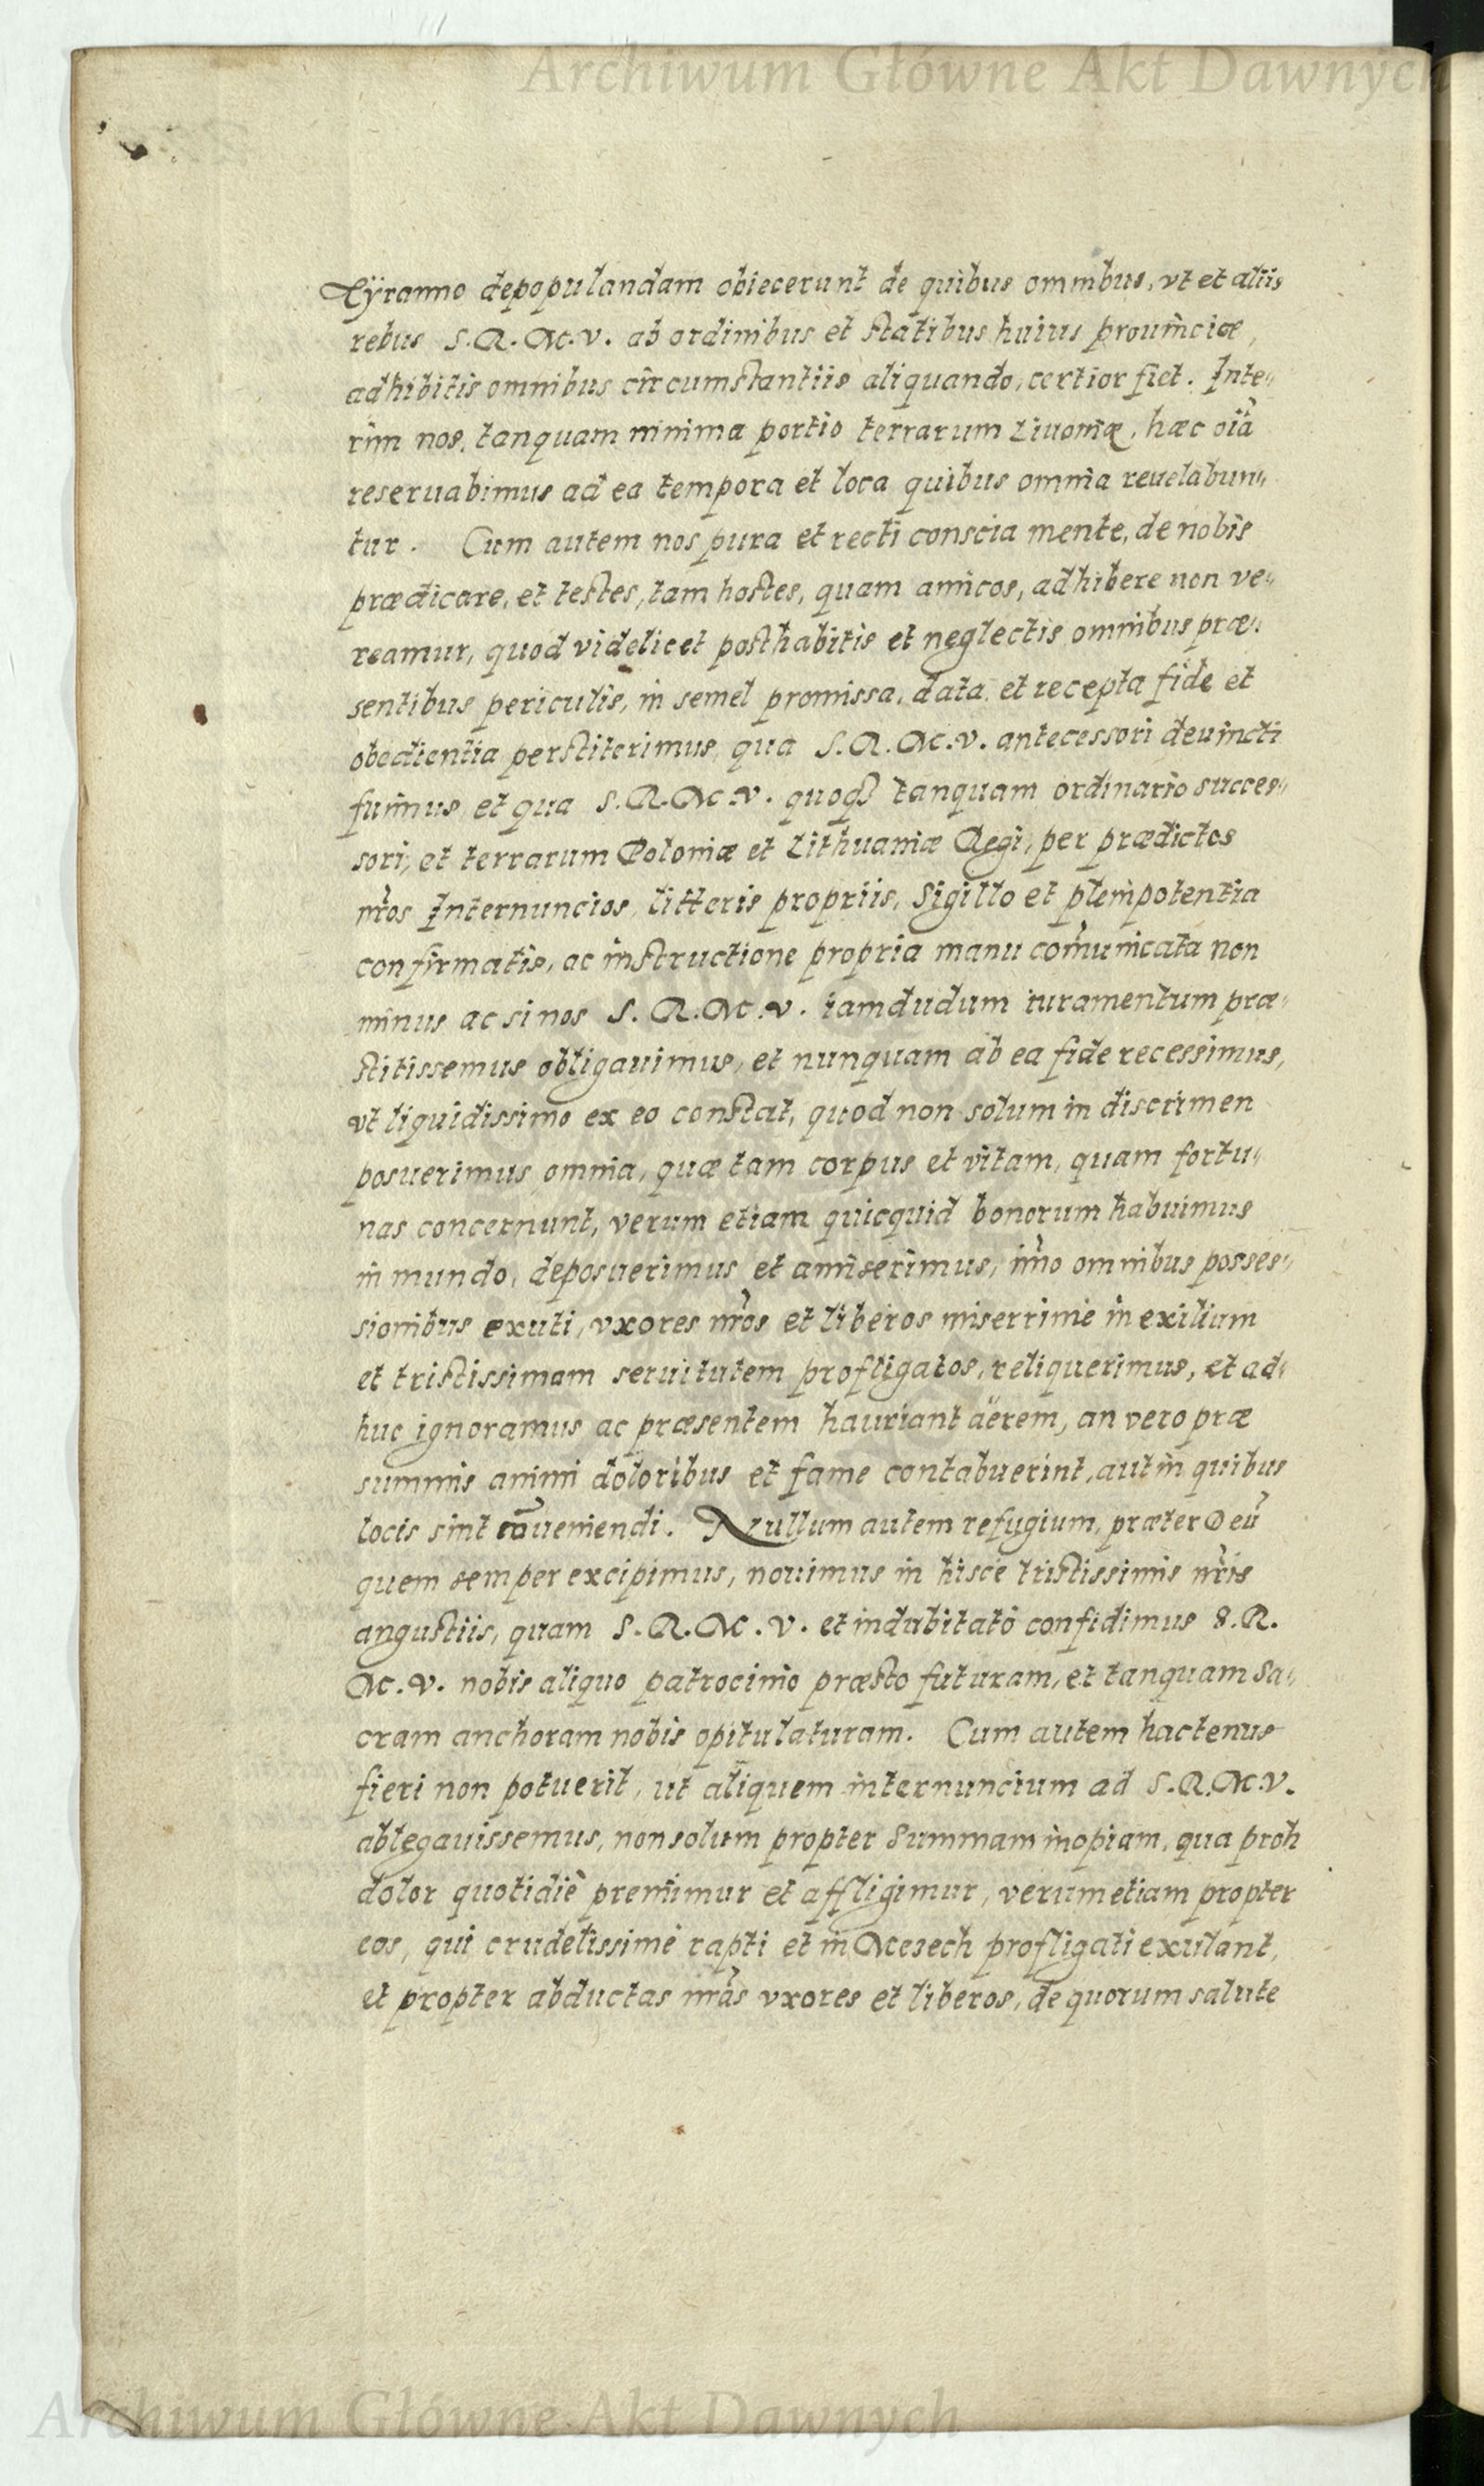 Archiwum Główne Akt Dawnych
Tÿranno depopulandam obiecerunt de quibus omnibus, vt et aliis
rebus S.R.M.V. ab ordinibus et statibus huius prouinciæ,
adhibitis omnibus circumstantiis aliquando, certior fiet. Inte„
rim nos, tanquam minima portio terrarum Liuoniæ, hæc oia
reseruabimus ad ea tempora et loca quibus omnia reuelabun„
tur. Cum autem nos pura et recti conscia mente, de nobis
prædicare, et testes, tam hostes, quam amicos, adhibere non ve„
reamur, quod videlicet posthabitis et neglectis omnibus præ„
sentibus periculis, in semel promissa, data, et recepta fide et
obedientia perstiterimus, qua S.R.M.V. antecessori deuincti
fuimus et qua S.R.M.V. quoq3 tanquam ordinario succes„
sori, et terrarum Poloniæ et Lithuaniæ Regi, per prædictos
nros Internuncios, litteris propriis, Sigillo et plenipotentia
confirmatis, ac instructione propria manu comunicata non
minus ac si nos S.R.M.V. iamdudum iuramentum præ„
stitissemus obligauimus, et nunquam ab ea fide recessimus,
vt liquidissimo ex eo constat, quod non solum in discrimen
posuerimus omnia, quæ tam corpus et vitam, quam fortu„
nas concernunt, verum etiam quicquid bonorum habuimus
in mundo, deposuerimus et amiserimus, imo omnibus posses„
sionibus exuti, vxores nros et liberos miserrime in exilium
et tristissimam seruitutem profligatos, reliquerimus, et ad„
huc ignoramus ac præsentem hauriant aërem, an vero præ
summis animi doloribus et fame contabuerint, aut in quibus
locis sint cōueniendi. Nullum autem refugium, præter Deū
quem semper excipimus, nouimus in hisce tristissimis nris
angustiis, quam S.R.M.V. et indubitatò confidimus S.R.
M.V. nobis aliquo patrocinio præsto futuram, et tanquam Sa„
cram anchoram nobis opitulaturam. Cum autem hactenus
fieri non potuerit, ut aliquem internuncium ad S.R.M.V.
ablegauissemus, non solum propter Summam inopiam, qua proh
dolor quotidiè premimur et affligimur, verum etiam propter
eos, qui crudelissimè rapti et in Mesech profligati exulant,
et propter abductas nras vxores et liberos, de quorum salute
Archiwum Główne Akt Dawnych